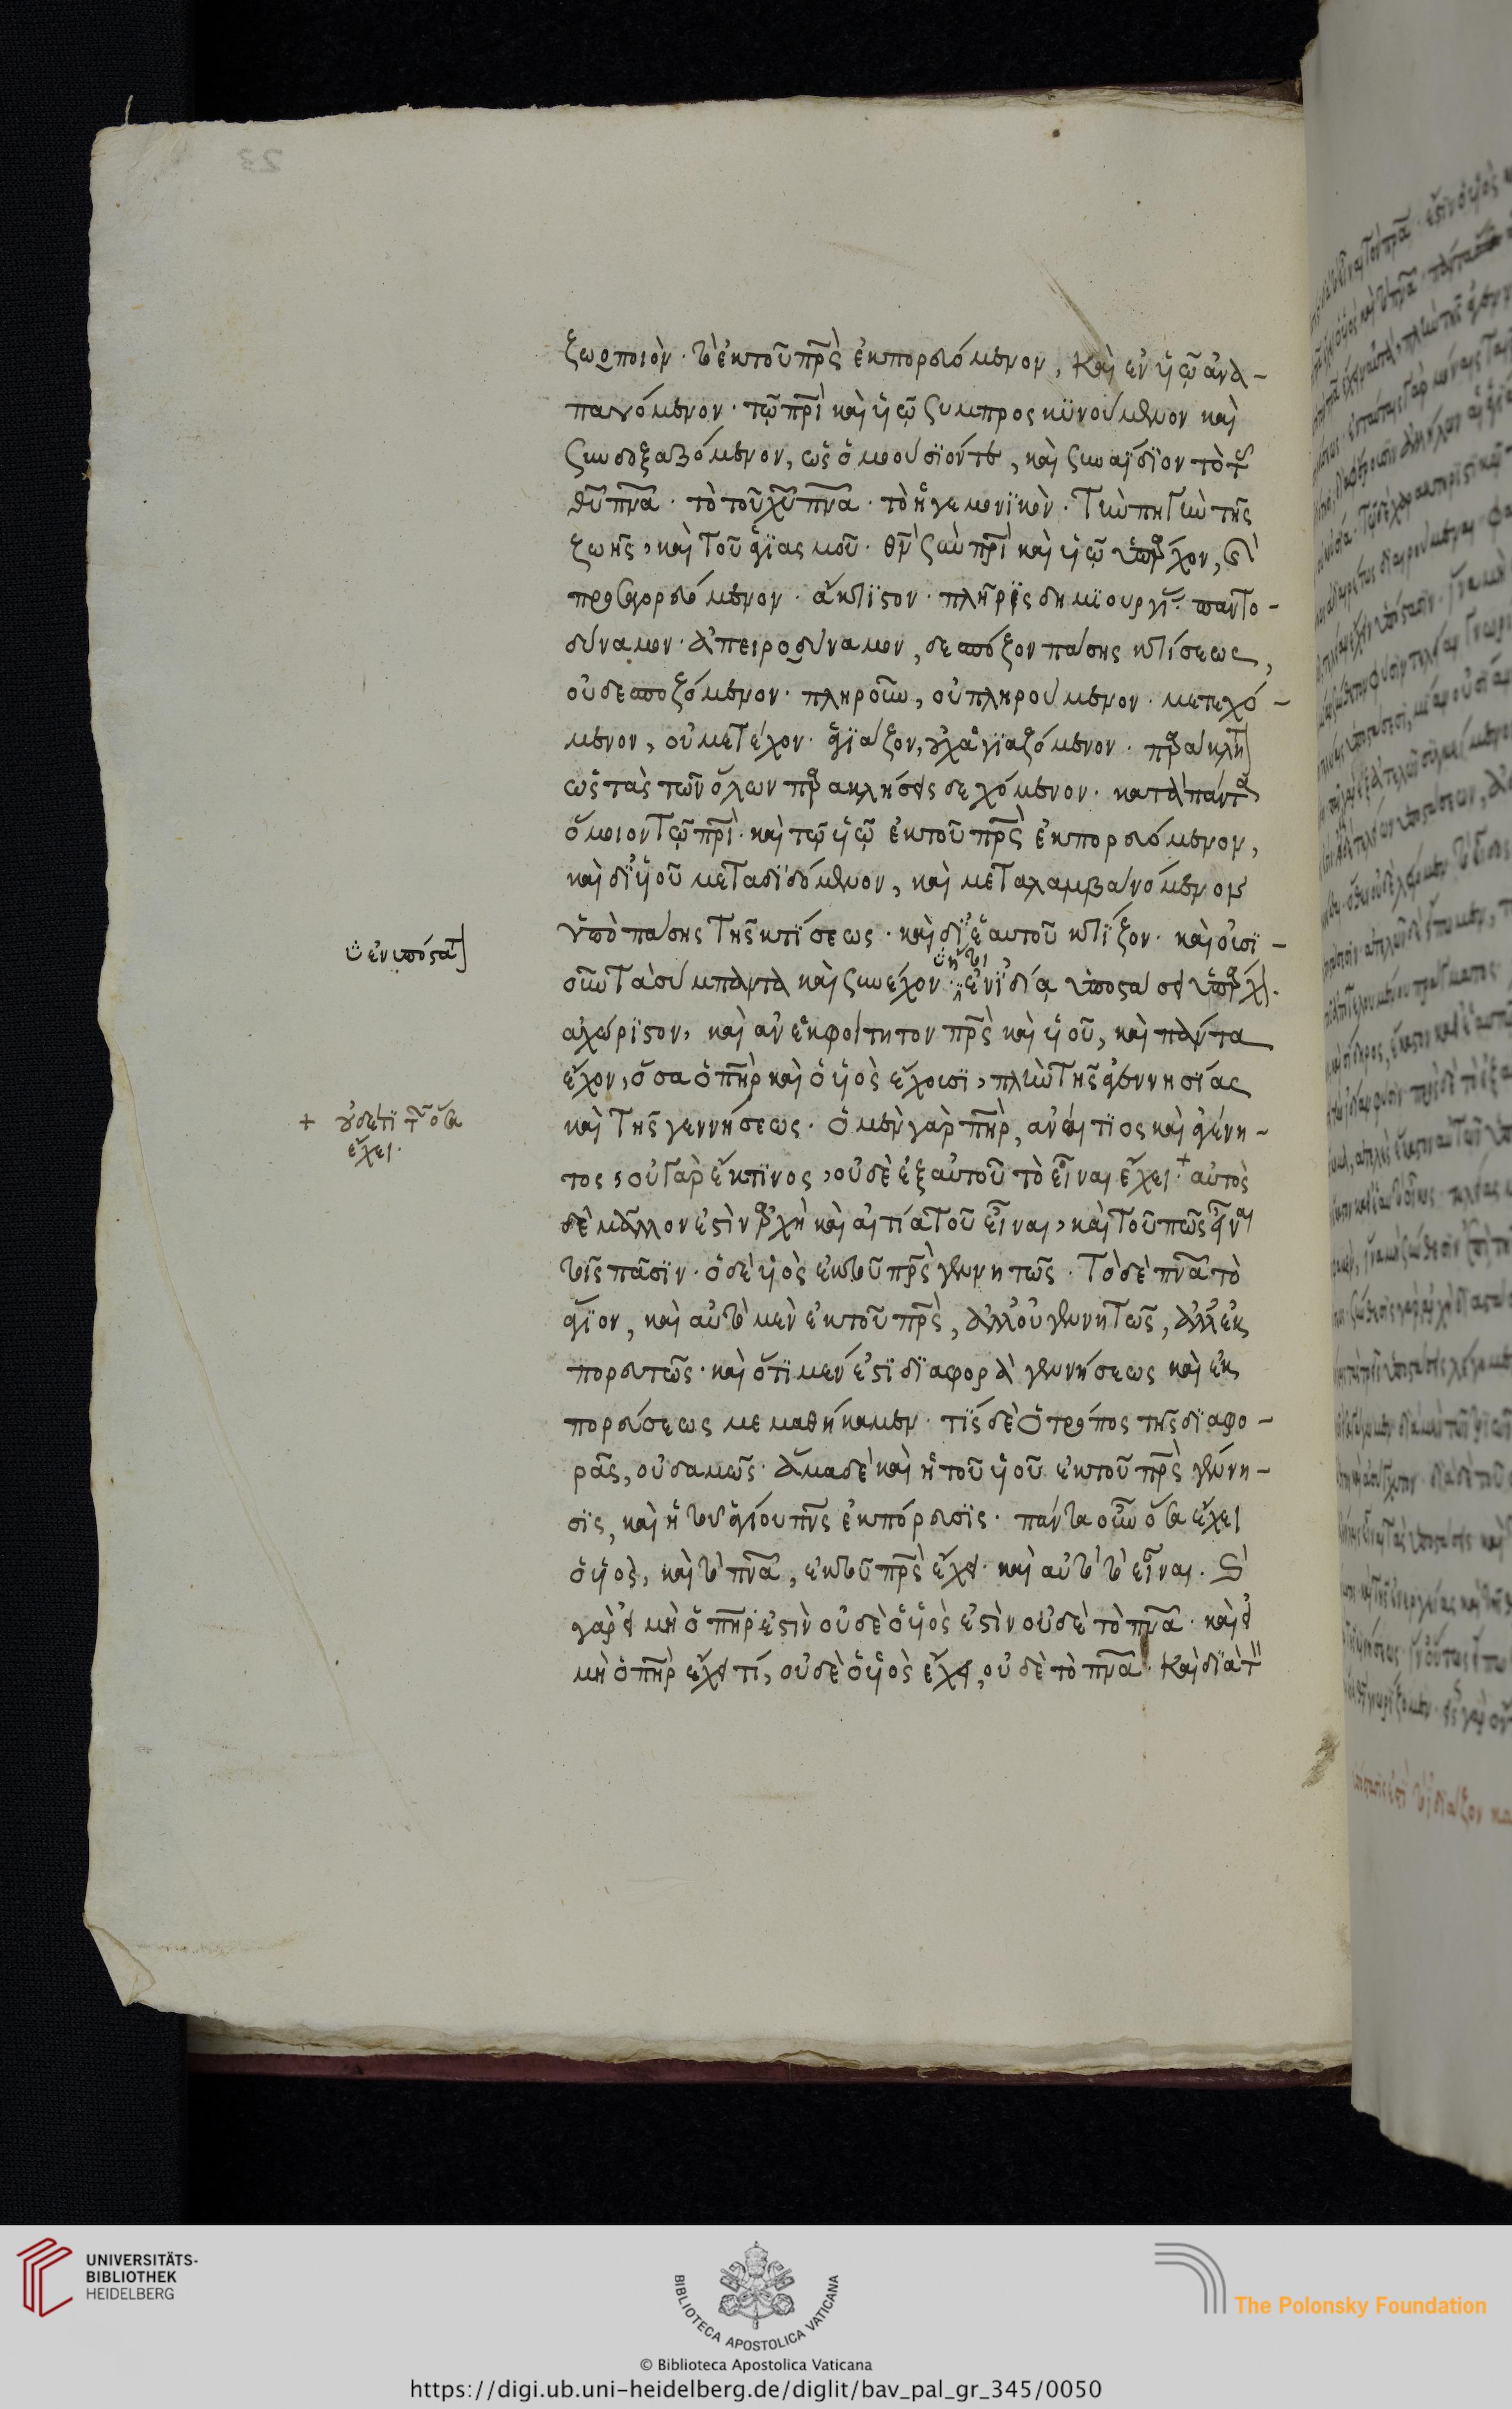 ζωοποιὸν· τὸ ἐκ τοῦ πρς ἐκπορευόμενον, καὶ ἐν υἱῷ ἀνα-
παυόμενον· τῷ πρὶ καὶ υἱῷ συμπροσκυνούμενον καὶ
συνδοξαζόμενον, ὡς ὁμοούσιόν τε, καὶ συναΐδιον· τὸ τοῦ
θῦ πνα· τὸ τοῦ χῦ πνα· τὸ ἡγεμονικὸν· τὴν πηγὴν τῆς
ζωῆς, καὶ τοῦ ἁγιασμοῦ· θν σὺν πρὶ καὶ υἱῷ ὑπάρχον, καὶ
προσαγορευόμενον· ἄκτιστον· πλῆρες δημιουργ· παντο-
δύναμον· ἀπειροδύναμον, δεσπόζον πάσης κτίσεως,
οὐ δεσποζόμενον· πληροῦν, οὐ πληρούμενον· μετεχό-
μενον, οὐ μετέχον· ἁγιάζον, οὐχ ἁγιαζόμενον· παράκλητ
ὡς τὰς τῶν ὅλων παρακλήσεις δεχόμενον· κατὰ πάντα
ὅμοιον τῷ πρὶ· καὶ τῷ υἱῷ ἐκ τοῦ πρς ἐκπορευόμενον,
καὶ δι' υἱοῦ μεταδιδόμενον, καὶ μεταλαμβανόμενον
ὑπὸ πάσης τῆς κτίσεως· καὶ δι' ἑαυτοῦ κτίζον· καὶ οὐσι-
οῦν τὰ σύμπαντα καὶ συνέχον· ἐν ἰδίᾳ ὑποστάσει ὑπάρχ
ἀχώριστον, καὶ ἀνεκφοίτητον πρς καὶ υἱοῦ, καὶ πάντα
ἔχον, ὅσα ὁ πηρ καὶ ὁ υἱὸς ἔχουσι, πλὴν τῆς ἀγεννησίας
καὶ τῆς γεννήσεως· ὁ μὲν γὰρ πηρ, ἀναίτιος καὶ ἀγένη-
τος, οὐ γὰρ ἔκ τινος, οὐδὲ ἐξ αὑτοῦ τὸ εἶναι ἔχει· + αὐτὸς
δὲ μᾶλλον ἐστὶν ἀρχὴ καὶ αἰτία τοῦ εἶναι, καὶ τοῦ πῶς εἶναι
τοῖς πᾶσιν· ὁ δὲ υἱὸς ἐκ τοῦ πρς γεννητῶς· τὸ δὲ πνα τὸ
ἅγιον, καὶ αὐτὸ μὲν ἐκ τοῦ πρς, ἀλλ' οὐ γεννητῶς, ἀλλ' ἐκ
πορευτῶς· καὶ ὅτι μέν ἐστι διαφορὰ γεννήσεως καὶ ἐκ
πορεύσεως μεμαθήκαμεν· τίς δὲ ὁ τρόπος τῆς διαφο-
ρᾶς, οὐδαμῶς· ἅμα δὲ καὶ ἡ τοῦ υἱοῦ ἐκ τοῦ πρς γέννη-
σις, καὶ ἡ τοῦ ἁγίου πνς ἐκπόρευσις· πάντα οὖν ὅσα ἔχει
ὁ υἱὸς, καὶ τὸ πνα, ἐκ τοῦ πρς ἔχει· καὶ αὐτὸ τὸ εἶναι·
γὰρ εἰ μὴ ὁ πηρ ἐστὶν οὐδὲ ὁ υἱὸς ἐστὶν οὐδὲ τὸ πνα· καὶ εἰ
μὴ ὁ πηρ ἔχει τί, οὐδὲ ὁ υἱὸς ἔχει, οὐδὲ τὸ πνα· καὶ διὰ τὸν
ἐνυπόστατ
+ οὐδέ τι τῶν ὅσα
ἔχει·
UNIVERSITÄTS-
BIBLIOTHEK
HEIDELBERG
BIBLIOTECA APOSTOLICA VATICANA
The Polonsky Foundation
© Biblioteca Apostolica Vaticana
https://digi.ub.uni-heidelberg.de/diglit/bav_pal_gr_345/0050